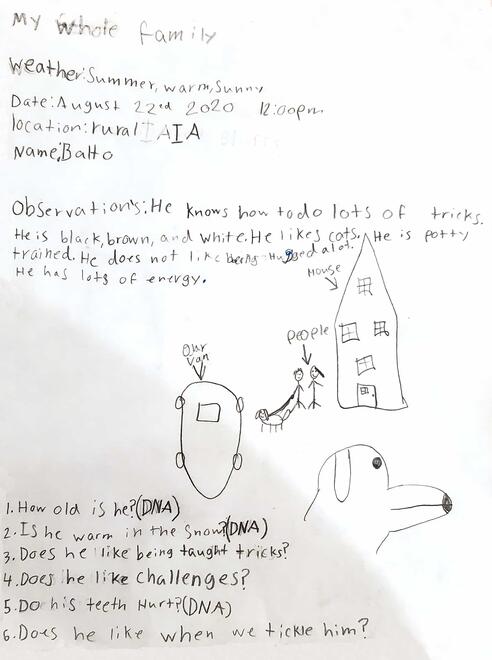 My Whole family
Weather:Summer, warm, Sunny
Date:August 22nd 2020 12:00pm.
location:rural IAIA
Name:Balto
Observation's:He knows how to do lots of tricks.
He is black, brown, and white. He likes cats. He is potty
trained. He does not like being Hugged a lot.
He has lots of energy.
House
People
Our
Van
1. How old is he?(DNA)
2. Is he warm in the Snow?(DNA)
3. Does he like being taught tricks?
4. Does he like Challenges?
5. Do his teeth Hurt?(DNA)
6. Does he like when we tickle him?